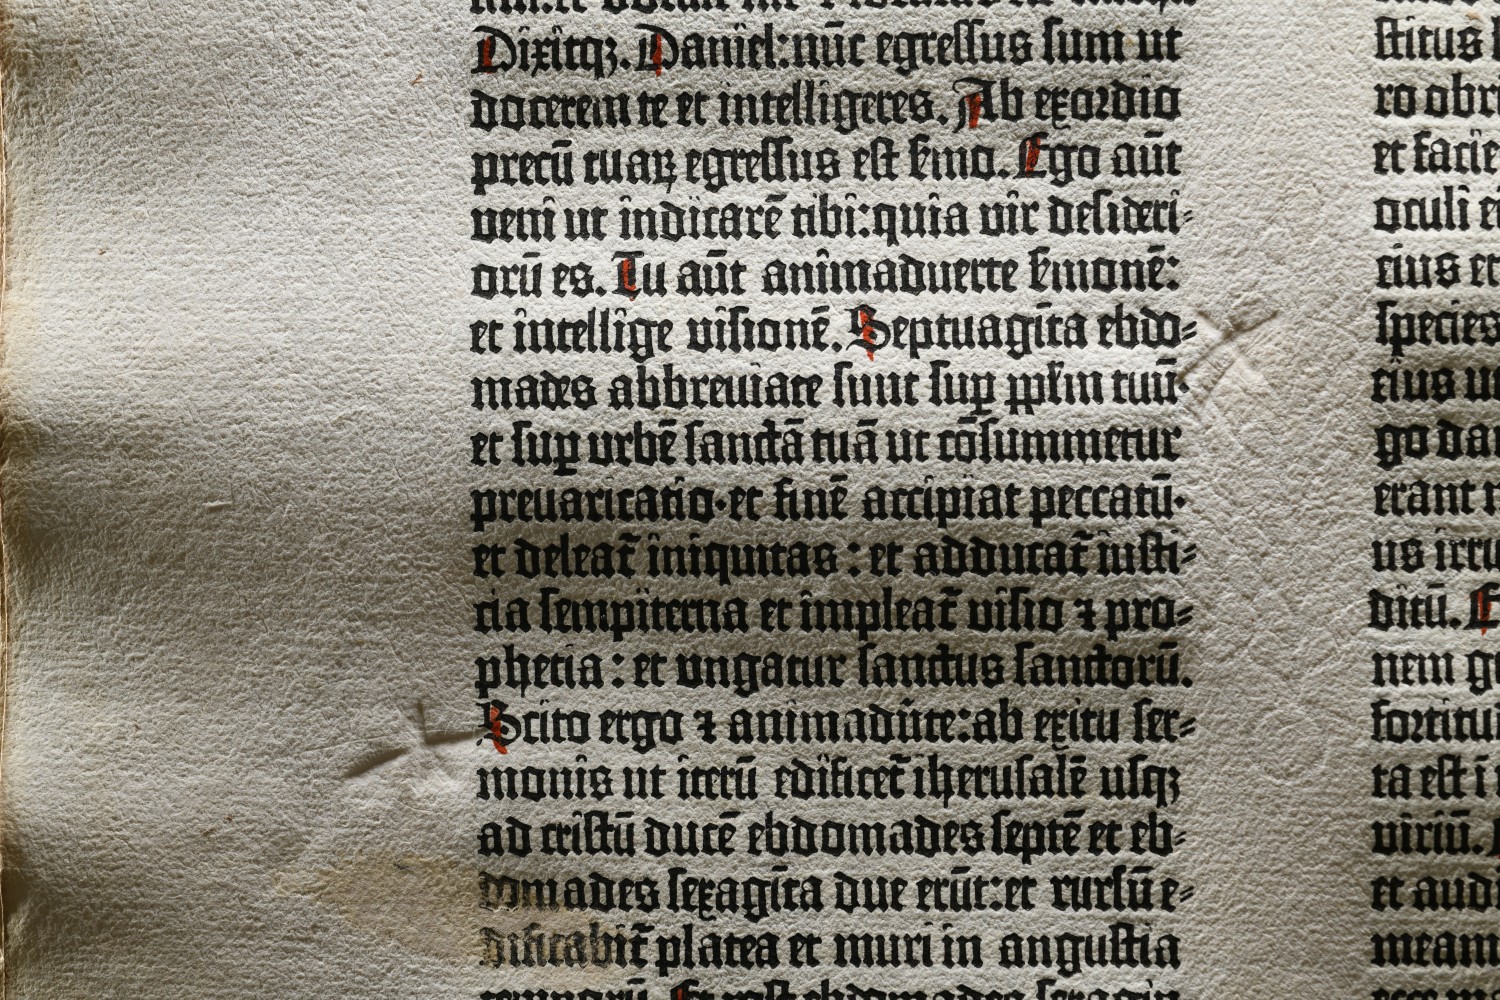 Dixitqꝫ. Daniel: nūc egressus sum ut
docerem te et intelligeres. Ab exordio
precū tuaꝝ egressus est ẜmo. Ego aūt
veni ut indicarē tibi: quia vir desideri-
orū es. Tu aūt animadverte ẜmonē:
et intellige visionē. Septuagīta ebdo-
mades abbreviate sunt suꝑ pp̄lm tuū·
et suꝑ urbē sanctā tuā ut cōsummetur
prevaricatio· et finē accipiat peccatū·
et deleat̄ iniquitas: et adducat̄ iusti-
cia sempiterna et impleat̄ visio ⁊ pro-
phetia: et ungatur sanctus sanctorū.
Scito ergo ⁊ animadūte: ab exitu ser-
monis ut iterū edificet̄ iherusalē usqꝫ
ad cristū ducē ebdomades septē et eb-
domades sexagīta due erūt: et rursū e-
dificabit̄ platea et muri in angustia
temporū. Et post ebdomades sexagin
stitus
ro obr
et facie
oculi ei
eius et
species
eius
go dar
erant
us irru
ditū. E
nem
fortitud
ta est ī
viriū.
et audi
meam